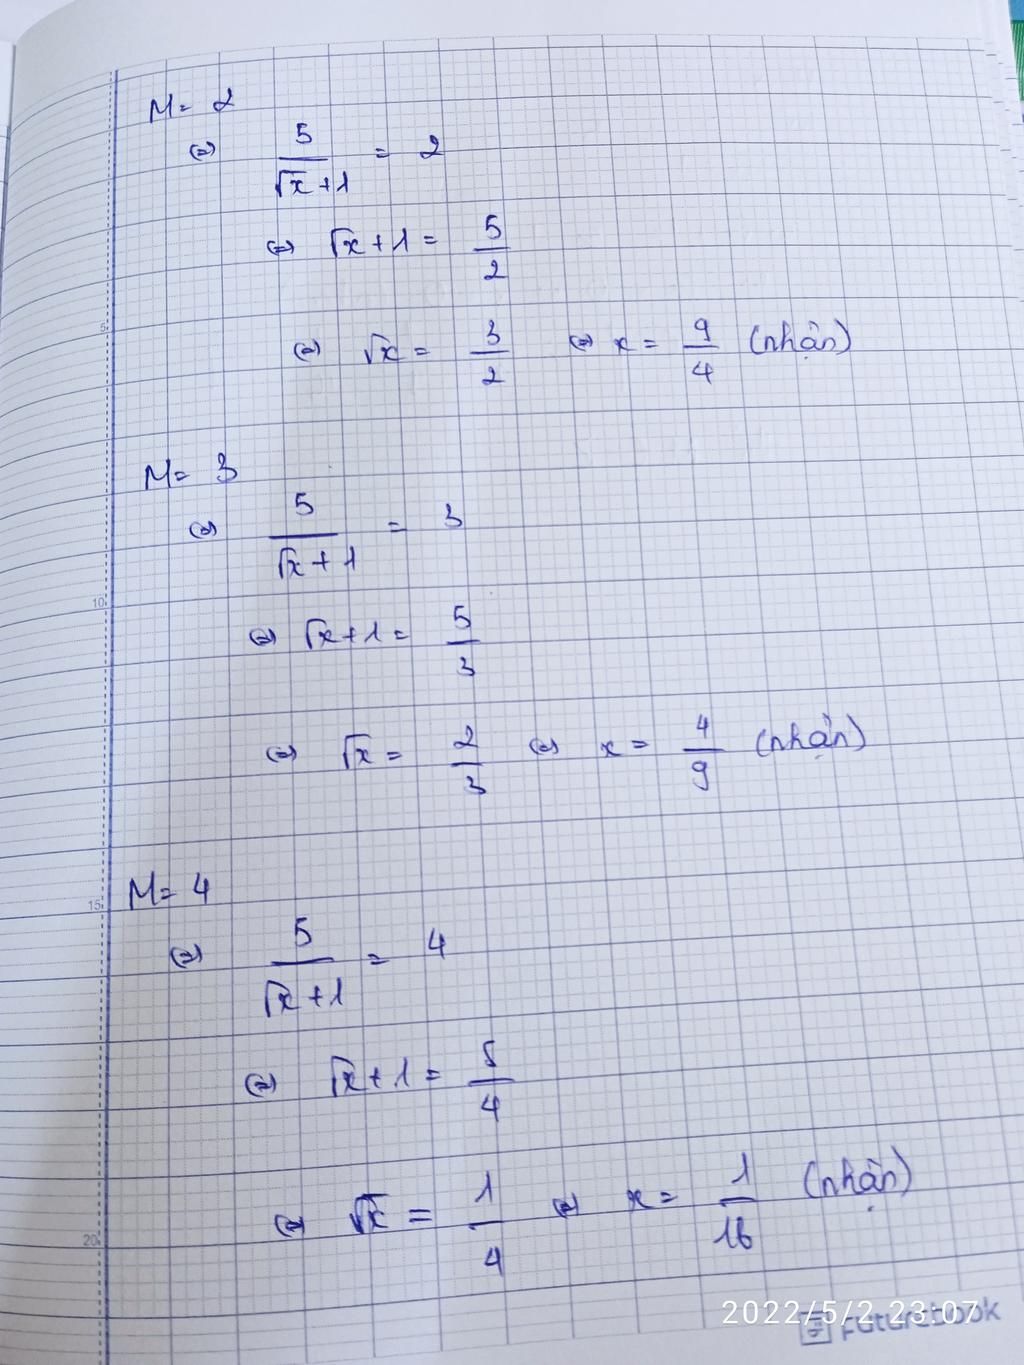 M = 2
⇔ 5/(√x + 1) = 2
⇔ √x + 1 = 5/2
⇔ √x = 3/2 ⇔ x = 9/4 (nhận)
5
M = 3
⇔ 5/(√x + 1) = 3
10
⇔ √x + 1 = 5/3
⇔ √x = 2/3 ⇔ x = 4/9 (nhận)
M = 4
15
⇔ 5/(√x + 1) = 4
⇔ √x + 1 = 5/4
⇔ √x = 1/4 ⇔ x = 1/16 (nhận)
20
2022/5/2 23:07
Futurebook